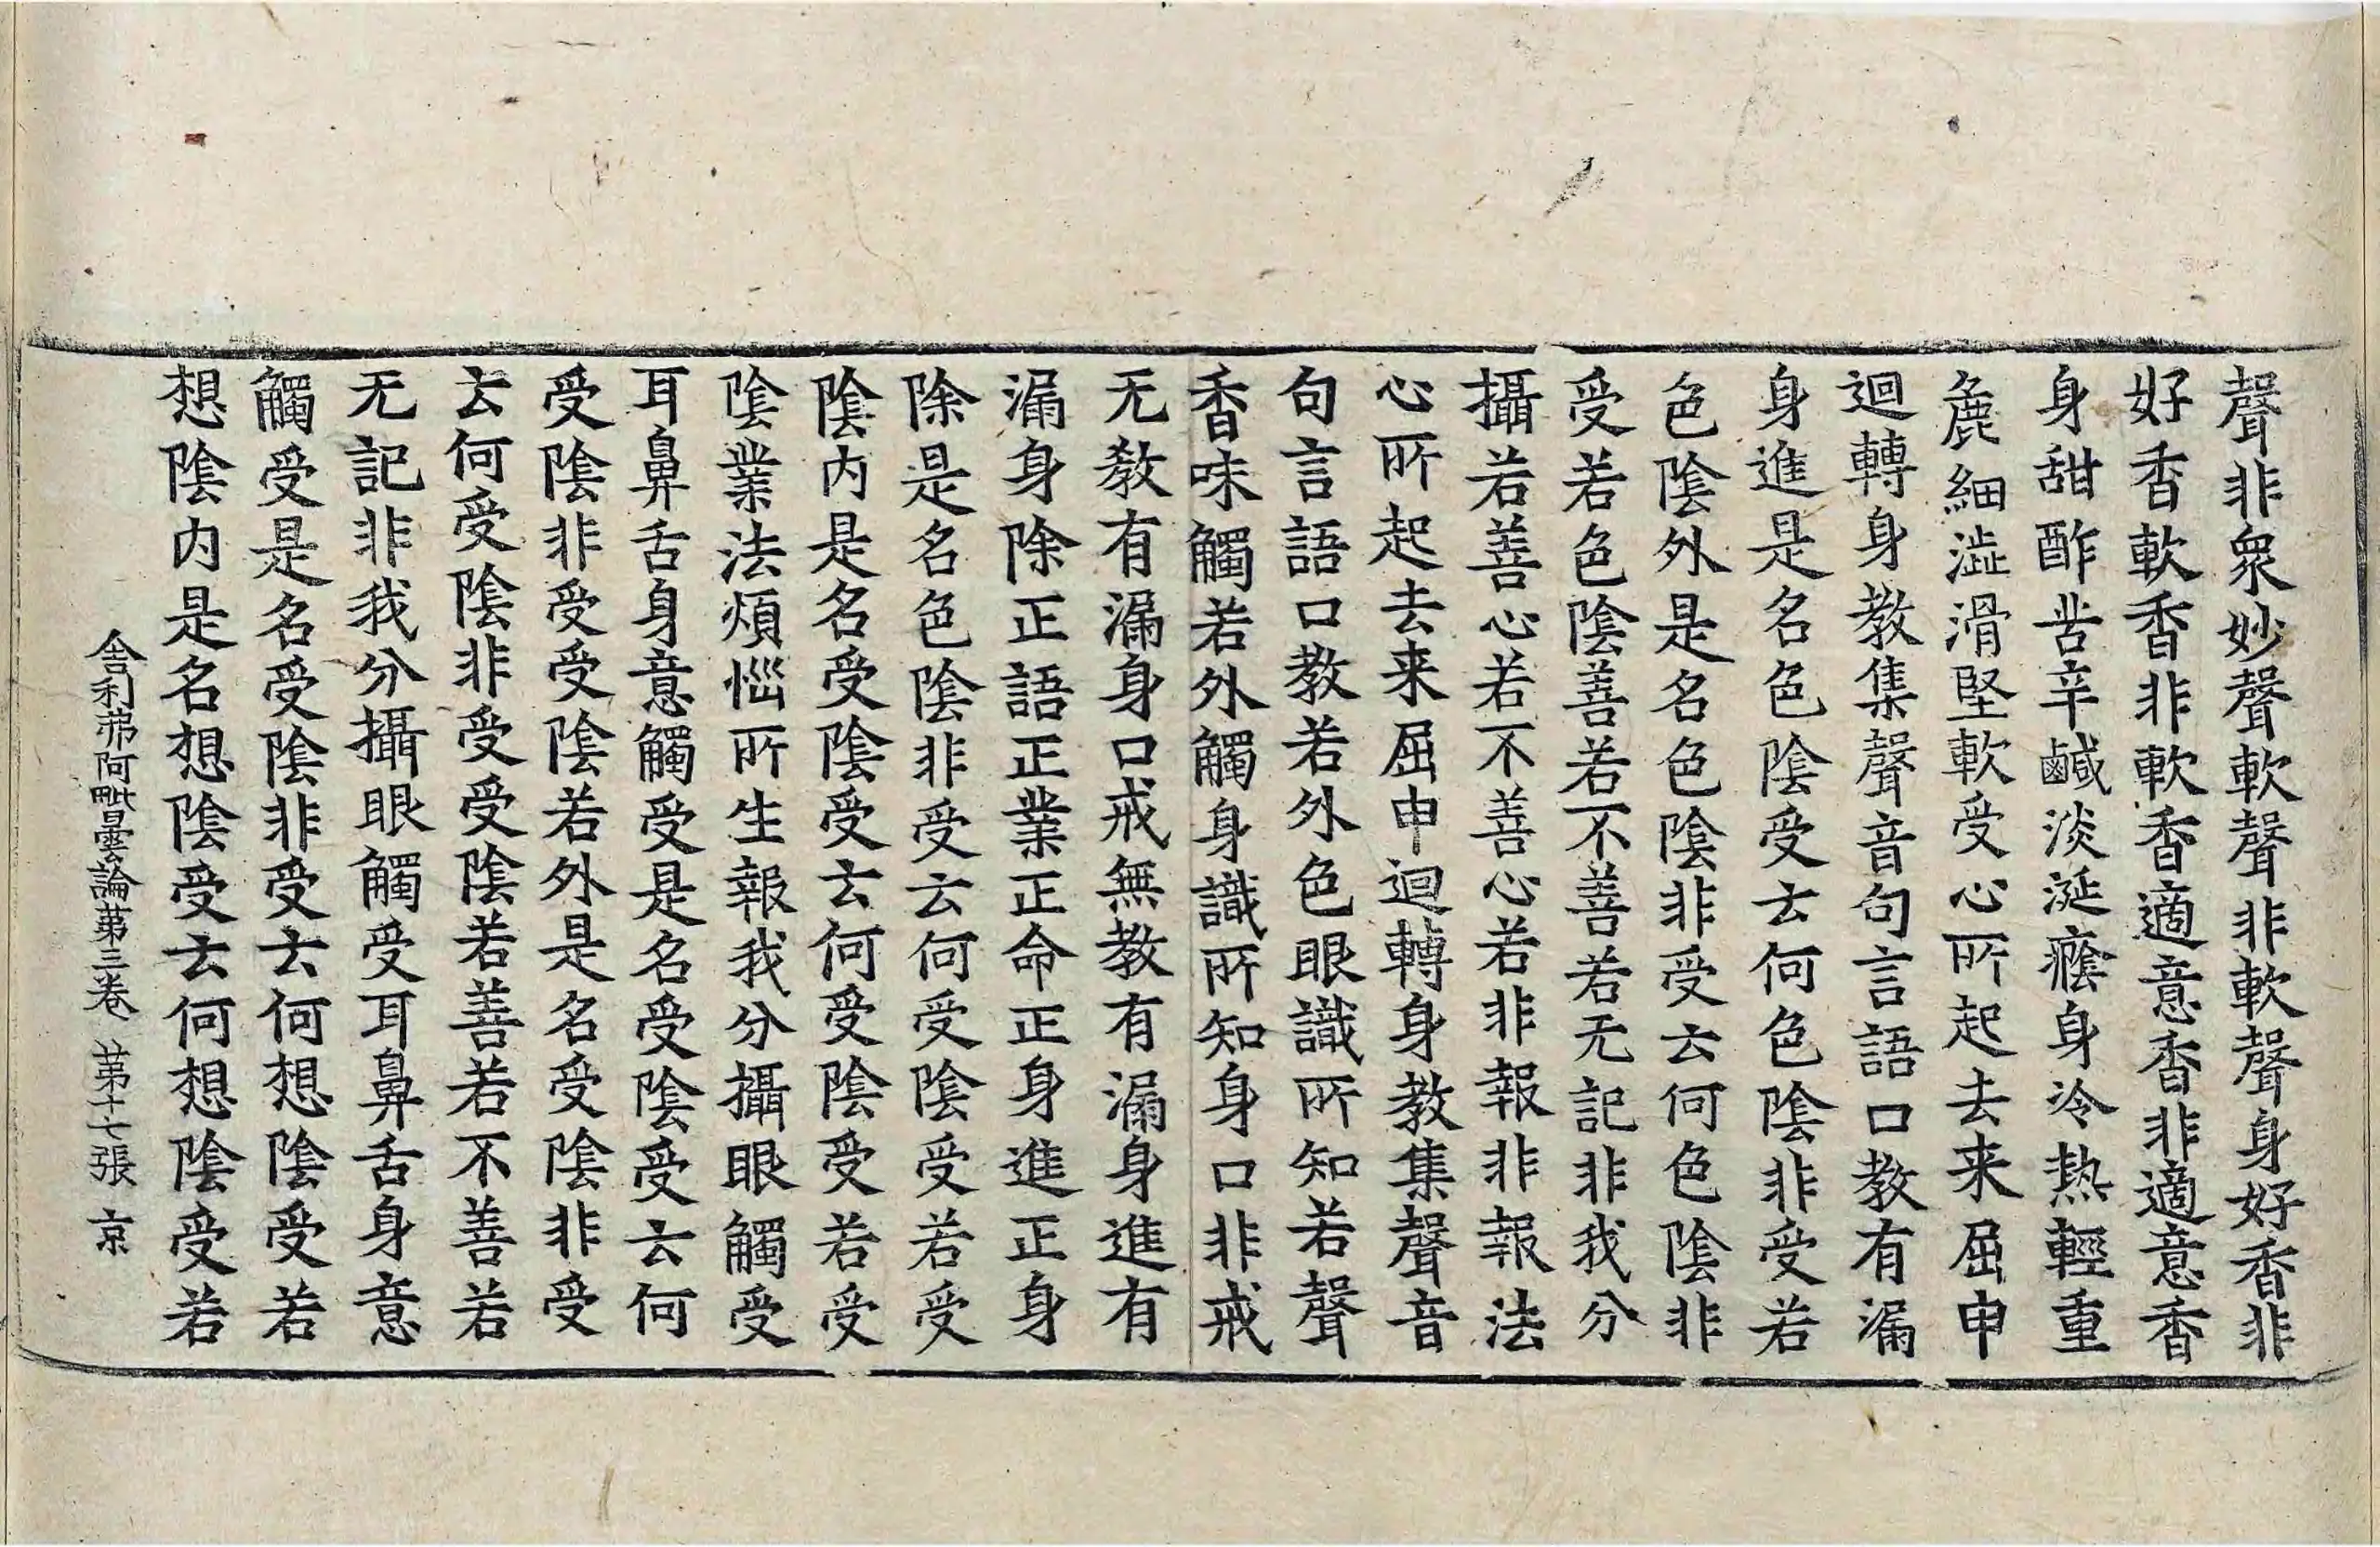 聲非衆妙聲軟聲非軟聲身好香非
好香軟香非軟香適意香非適意香
身甜酢苦辛鹹淡涎癊身冷熱輕重
麁細澁滑堅軟受心所起去来屈申
迴轉身教集聲音句言語口教有漏
身進是名色陰受云何色陰非受若
色陰外是名色陰非受云何色陰非
受若色陰善若不善若无記非我分
攝若善心若不善心若非報非報法
心所起去来屈申迴轉身教集聲音
句言語口教若外色眼識所知若聲
香味觸若外觸身識所知身口非戒
无教有漏身口戒無教有漏身進有
漏身除正語正業正命正身進正身
除是名色陰非受云何受陰受若受
陰内是名受陰受云何受陰受若受
陰業法煩惱所生報我分攝眼觸受
耳鼻舌身意觸受是名受陰受云何
受陰非受受陰若外是名受陰非受
云何受陰非受受陰若善若不善若
无記非我分攝眼觸受耳鼻舌身意
觸受是名受陰非受云何想陰受若
想陰内是名想陰受云何想陰受若
舎利弗阿毗曇論第三卷 第十七張 京